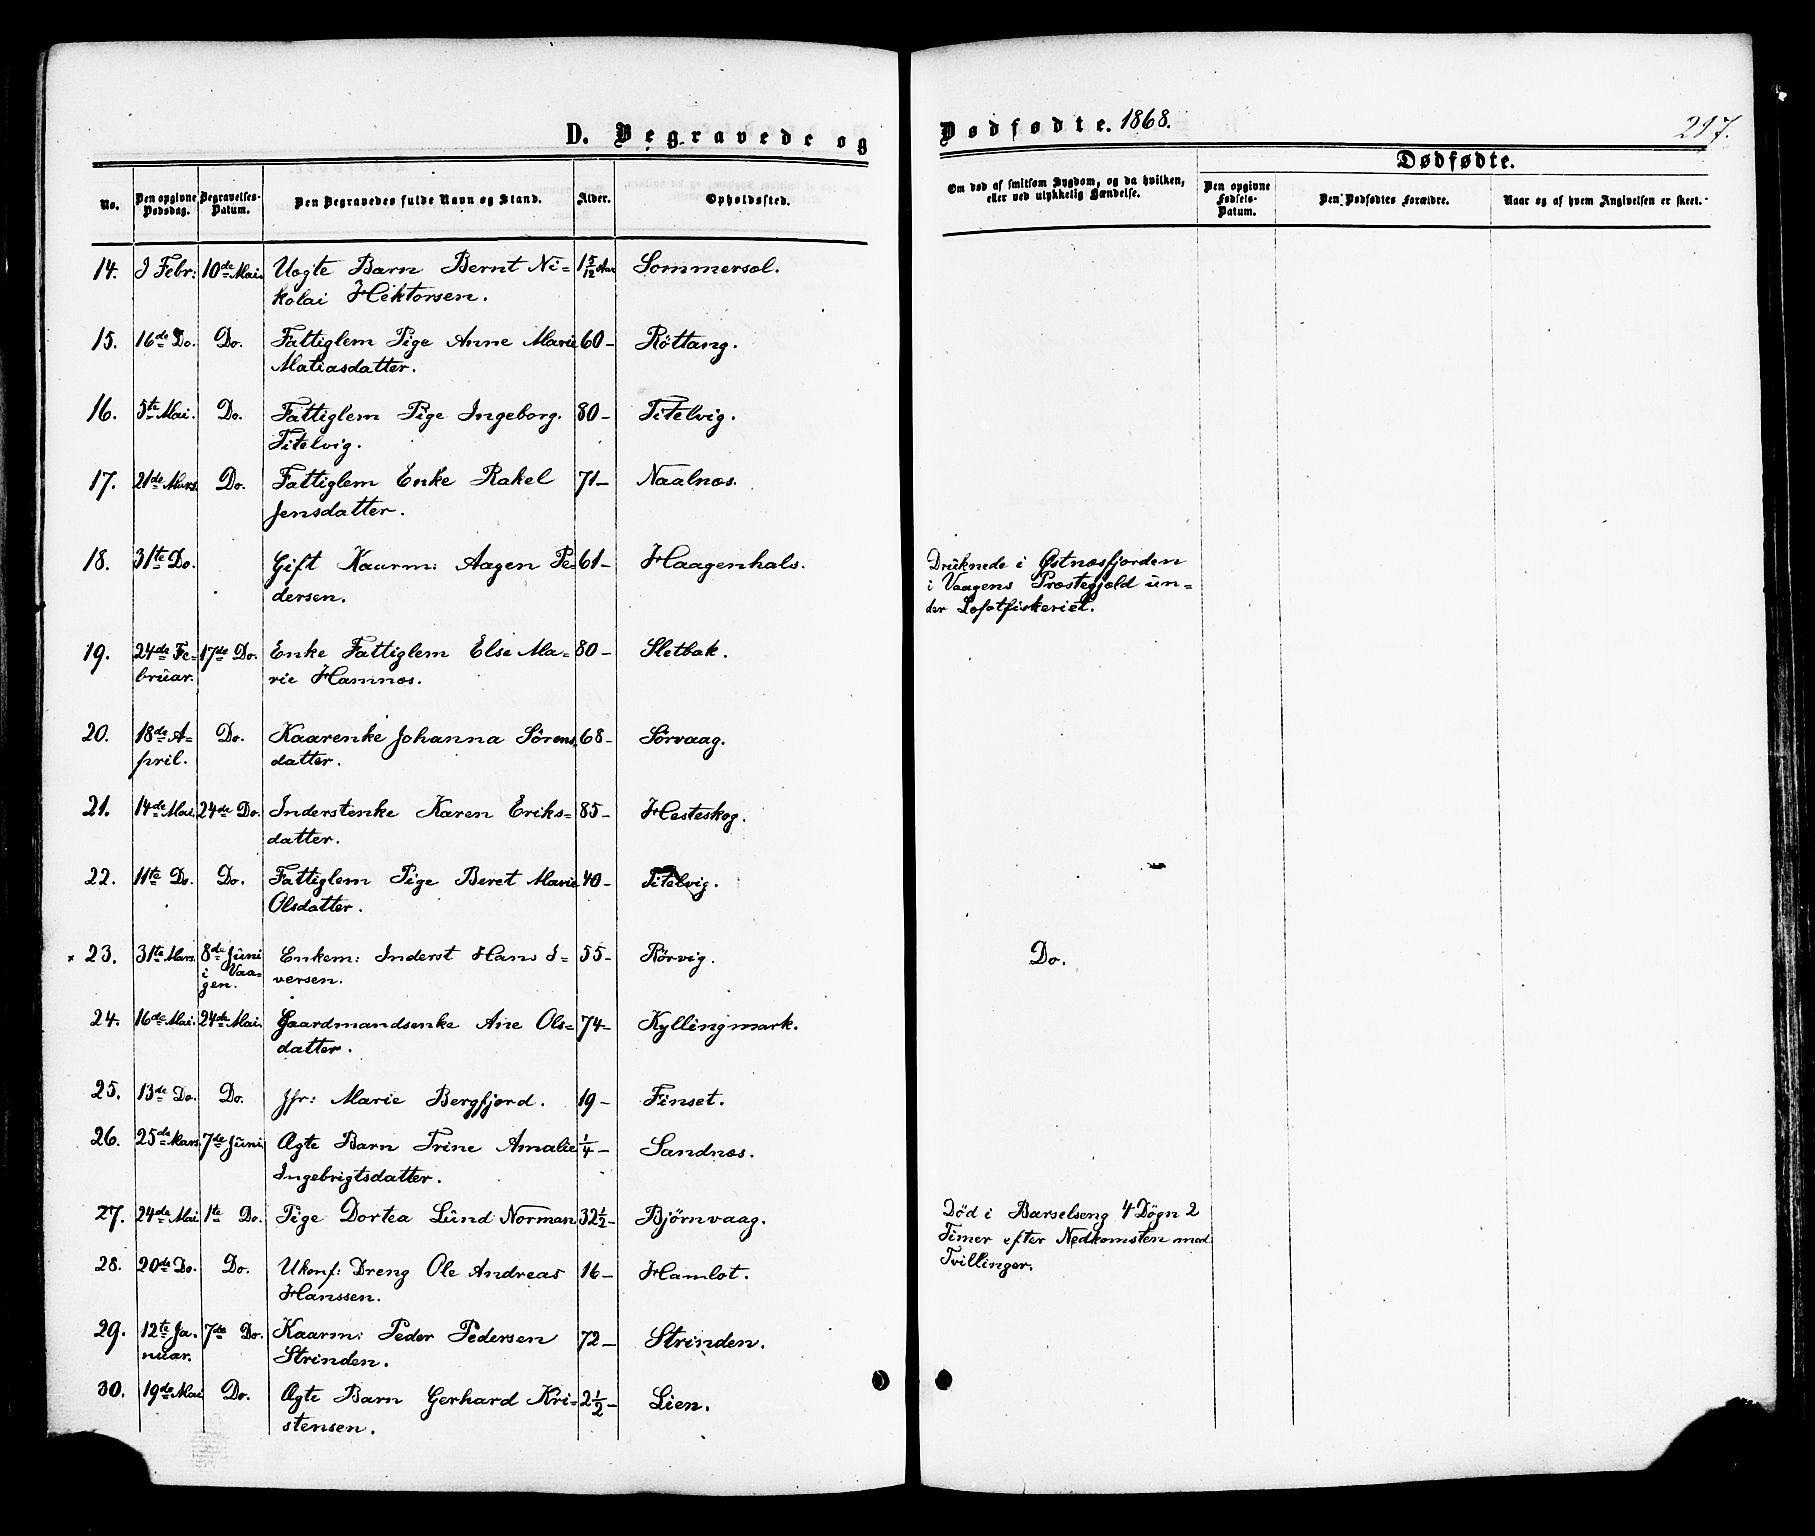 D. Begravede og Dødfødte. 1868. 297.
Dødfødte.
No. | Den opgivne Dødsdag. | Begravelses-Datum. | Den Begravedes fulde Navn og Stand. | Alder. | Opholdssted. | Om død af smitsom Sygdom, og da hvilken, eller ved ulykkelig Hændelse. | Den opgivne Fødsels-Datum. | Den Dødfødtes Forældre. | Naar og af hvem Angivelsen er skeet.
14. | Febr: | 10de Mai | Uægte Barn Bernt Ni- | 1 5/12 Aar | Sommersæl.
kolai Hektorsen.
15. | 16de Do. | Do. | Fattiglem Pige Anne Marie | 60- | Röttang.
Matiasdatter.
16. | 5te Mai. | Do. | Fattiglem Pige Ingeborg. | 80- | Titelvig.
Titelvig.
17. | 21de Mars. | Do. | Fattiglem Enke Rakel | 71- | Naalnæs.
Jensdatter.
18. | 31te Do. | Gift Kaarm: Aagen Pe- | 61- | Haagenhals. | Druknede i Østnæsfjorden
dersen. | i Vaagens Præstegjæld un-
der Lofotfiskeriet.
19. | 24de Fe- | 17de Do. | Enke Fattiglem Else Ma- | 80- | Sletbak.
bruar. | rie Hamnæs.
20. | 18de A- | Do. | Kaarenke Johanna Sörens | 68- | Sörvaag.
pril. | datter.
21. | 14de Mai. | 24de Do. | Inderstenke Karen Eriks- | 85- | Hesteskog.
datter.
22. | 11te Do. | Do. | Fattiglem Pige Beret Marie | 40- | Titelvig.
Olsdatter.
× 23. | 31te Mars. | 8de Juni | Enkem: Inderst Hans I- | 55- | Rörvig. | Do.
i Vaa- | versen.
gen.
24. | 16de Mai. | 24de Mai. | Gaardmandsenke Ane Ols- | 74- | Kyllingmark.
datter.
25. | 13de Do. | Do. | Jfr: Marie Bergfjord. | 19- | Finset.
26. | 25de Mars. | 7de Juni | Ægte Barn Trine Amalie | 1/4- | Sandnæs.
Ingebrigtsdatter.
27. | 24de Mai | 1te Do. | Pige Dortea Lund Norman | 32 1/2- | Björnvaag. | Död i Barselseng 4 Dögn 2
Timer efter Nedkomsten med
28. | 20de Do. | Do. | Ukonf: Dreng Ole Andreas | 16- | Hamlot. | Tvillinger.
Hanssen.
29. | 12te Ja- | 7de Do. | Kaarm: Peder Pedersen | 72- | Strinden.
nuar. | Strinden.
30. | 19de Mai | Do. | Ægte Barn Gerhard Kri- | 2 1/2- | Lien.
stensen.